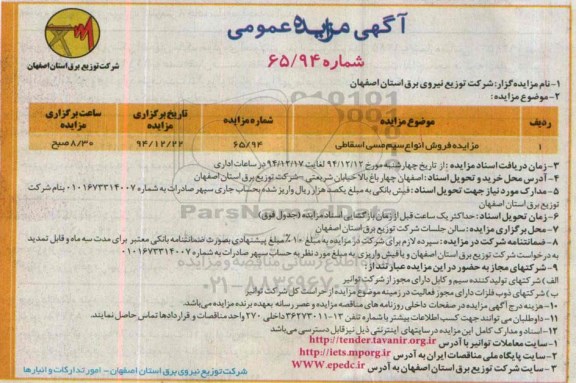 آگهی مزایده عمومی
شماره ۶۵/۹۴
شرکت توزیع برق استان اصفهان
۱-نام مزایده‌گزار: شرکت توزیع نیروی برق استان اصفهان
۲-موضوع مزایده:
ردیف موضوع مزایده شماره مزایده تاریخ برگزاری مزایده ساعت برگزاری مزایده
۱ مزایده فروش انواع سیم مسی اسقاطی ۶۵/۹۴ ۹۴/۱۲/۲۲ ۸/۳۰ صبح
۳-زمان دریافت اسناد مزایده: از تاریخ چهارشنبه مورخ ۹۴/۱۲/۱۲ لغایت ۹۴/۱۲/۱۷ در ساعات اداری
۴-آدرس محل خرید و تحویل اسناد: اصفهان چهارباغ بالا خیابان شریعتی-شرکت توزیع برق استان اصفهان
۵-مدارک مورد نیاز جهت تحویل اسناد: فیش بانکی به مبلغ یکصد هزار ریال واریز شده بحساب جاری سپهر صادرات به شماره ۰۱۰۱۶۷۳۳۱۴۰۰۷ بنام شرکت
توزیع برق استان اصفهان
۶-زمان تحویل اسناد: حداکثر یک ساعت قبل از زمان بازگشایی اسناد مزایده (جدول فوق)
۷-محل برگزاری مزایده: سالن جلسات شرکت توزیع برق استان اصفهان
۸-ضمانتنامه شرکت در مزایده: سپرده لازم برای شرکت در مزایده به مبلغ ۱۰٪ مبلغ پیشنهادی بصورت ضمانتنامه بانکی معتبر برای مدت سه ماه و قابل تمدید
به درخواست شرکت توزیع برق استان اصفهان و یا فیش واریزی به مبلغ مورد نظر به حساب سپهر صادرات به شماره ۰۱۰۱۶۷۳۳۱۴۰۰۷
۹-شرکتهای مجاز به حضور در این مزایده عبارتند از:
الف) شرکتهای تولیدکننده سیم و کابل دارای مجوز از شرکت توانیر
ب) شرکتهای ذوب فلزات دارای مجوز فعالیت در زمینه موضوع مزایده از حراست کل شرکت توانیر
۱۰-هزینه درج آگهی مزایده در صفحات داخلی روزنامه های مناقصه مزایده و عصر رسانه بعهده برنده مزایده می‌باشد.
۱۱-داوطلبان می توانند جهت کسب اطلاعات بیشتر با شماره تلفن ۱۳-۳۶۲۷۳۰۱۱ داخلی ۲۷۰ واحد مناقصات و قراردادها تماس حاصل نمایند.
۱۲-اسناد و مدارک کامل این مزایده در سایتهای اینترنتی ذیل نیز قابل دسترسی می باشد
۱-سایت معاملات توانیر با آدرس http://tender.tavanir.org.ir
۲-سایت پایگاه ملی مناقصات ایران به آدرس http://iets.mporg.ir
۳-سایت شرکت توزیع برق استان اصفهان به آدرس WWW.epedc.ir
شرکت توزیع نیروی برق استان اصفهان - امور تدارکات و انبارها